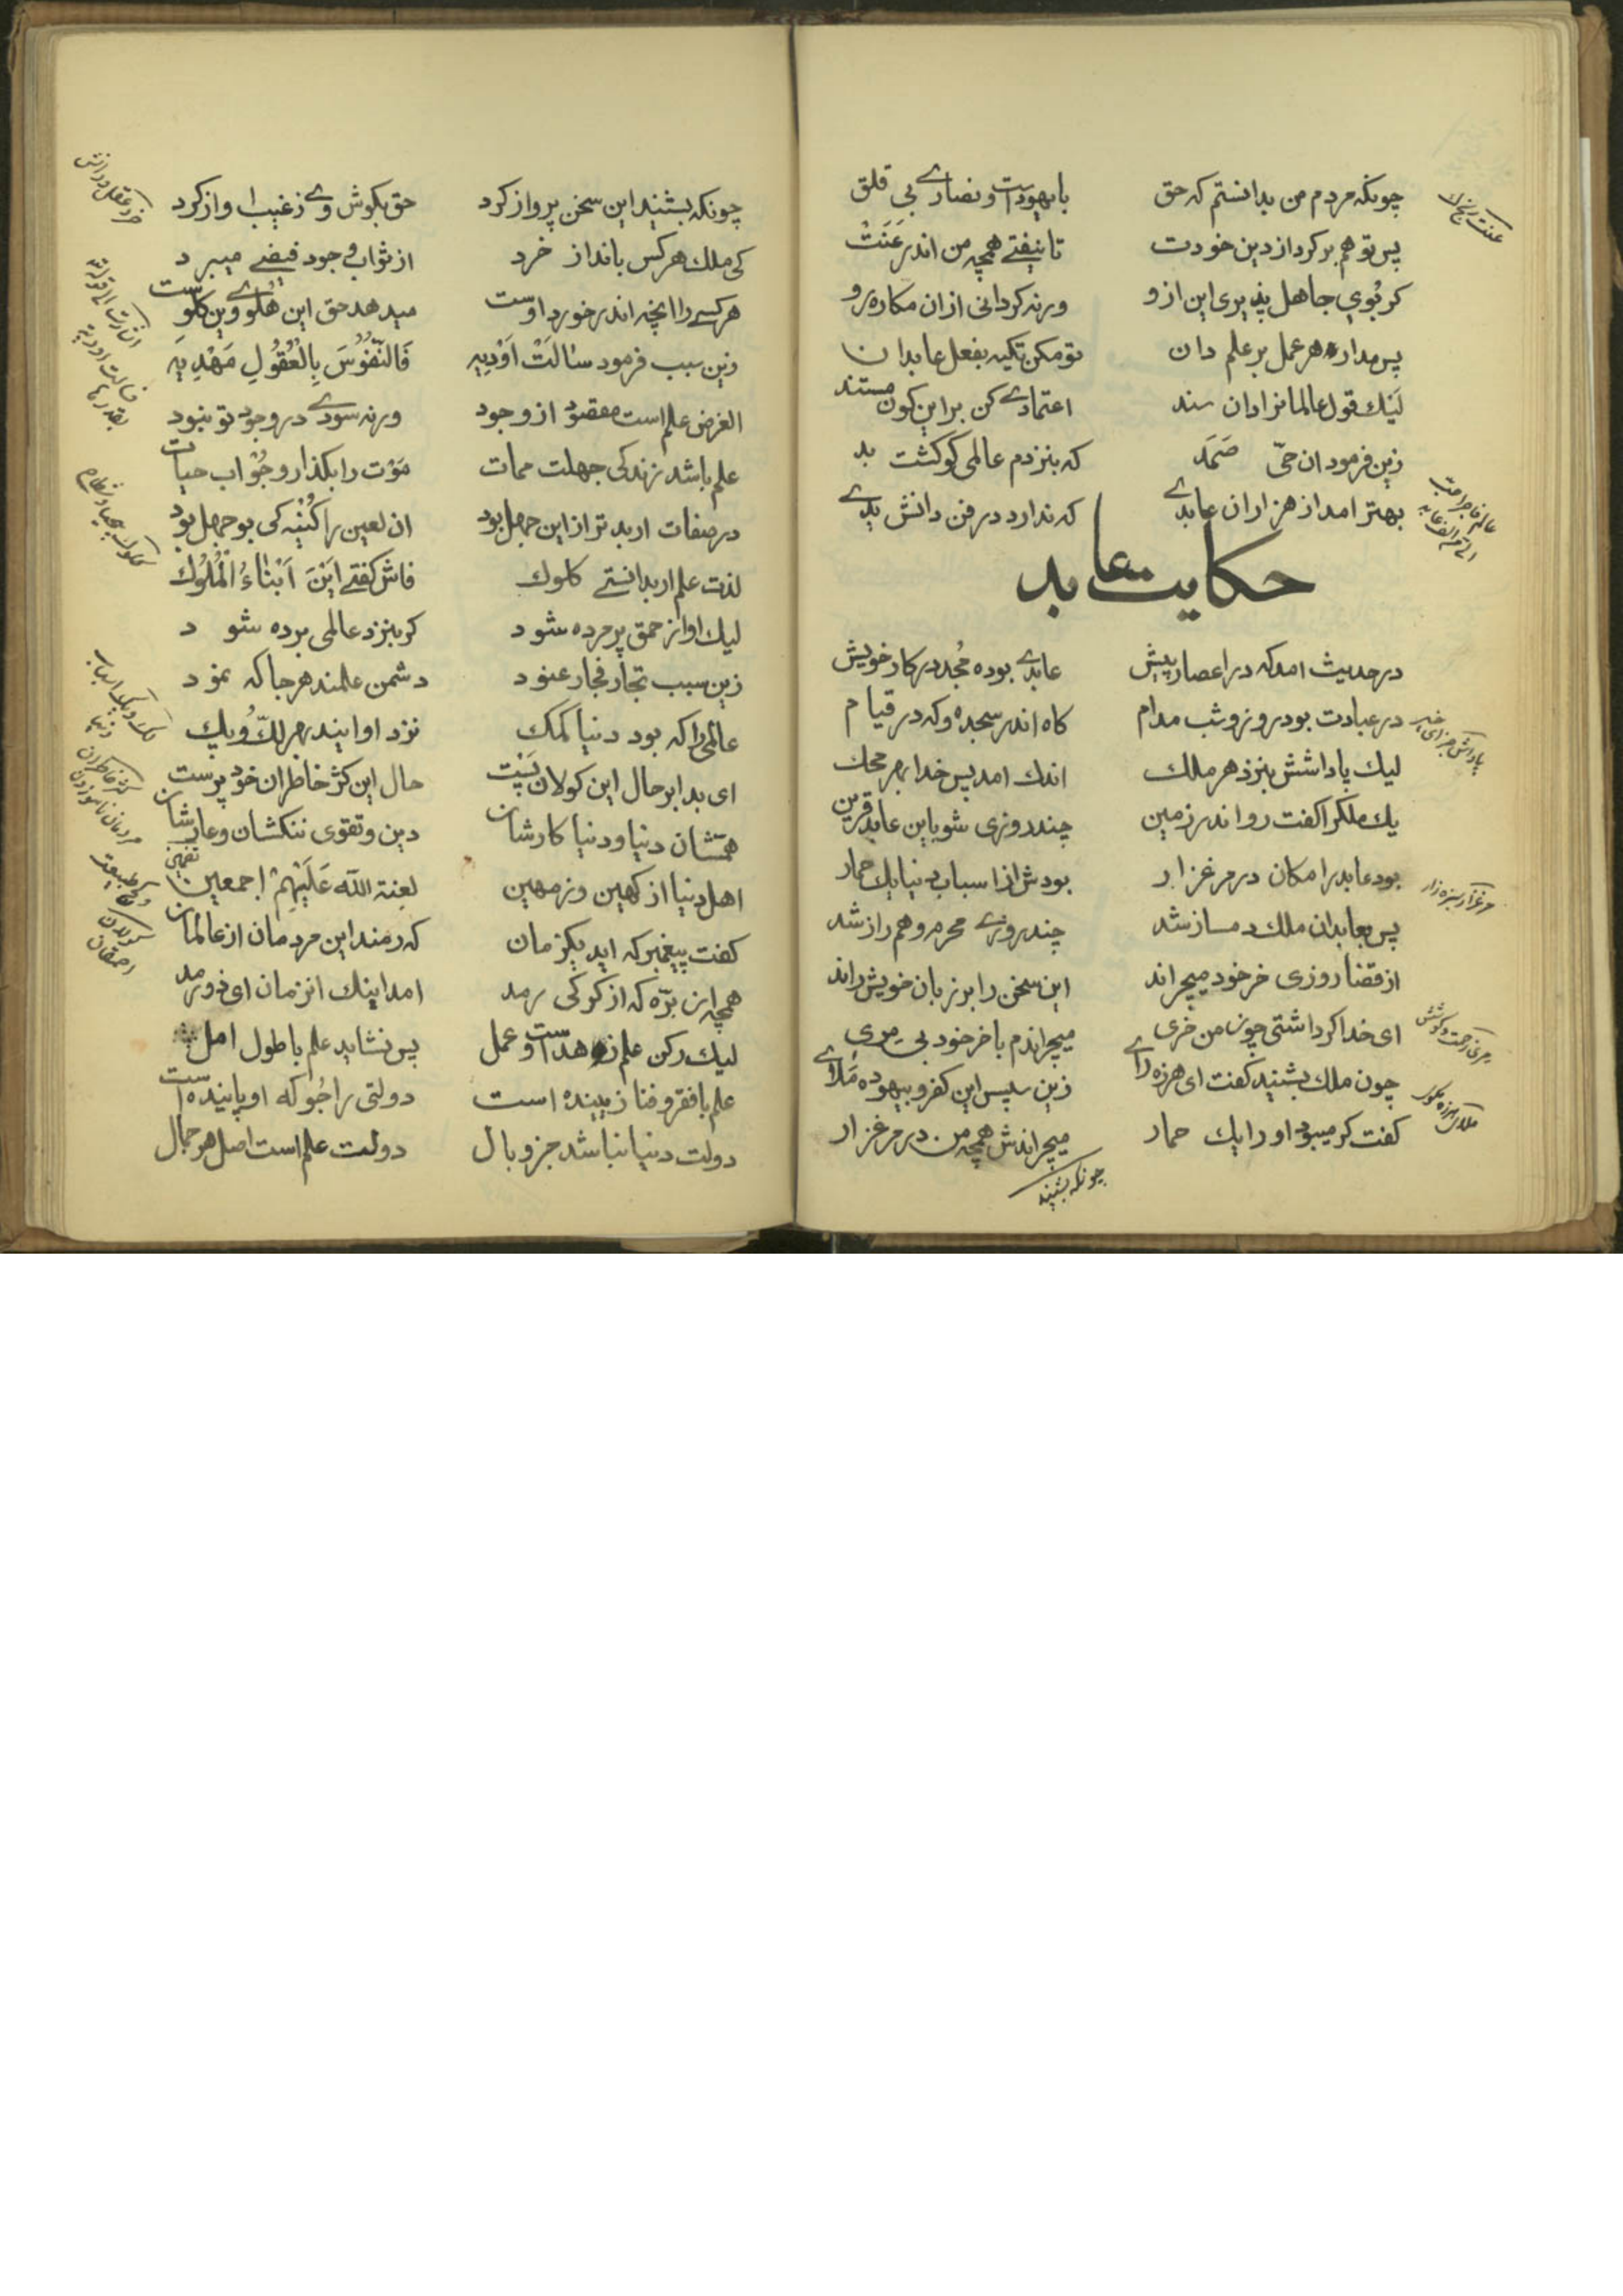 چونکه مردم من بدانستم که حق	با یهوداست و نصارے بی قلق
پس تو هم برکرد از دین خودت	تا نیفتے همچه من اندر عَنَتْ
کر تُوی جاهل پذیری این ازو	ورنه کردانی ازان مکاره رو
پس مدار هر عمل بر علم دان	تو مکن تکیه بفعل عابدان
لَیْك قول عالمانرا دان سند	اعتمادے کن براین کون مستند
زین فرمود ان حیّ صَمَد	که بنزدم عالمی کو کشت بد
بهتر امد از هزاران عابدے	که ندارد در فن دانش یدے
حکایت عابد
در حدیث امد که در اعصار پیش	عابدے بوده مُجدد در کار خویش
در عبادت بود روز و شب مدام	کاه اندر سجده و که در قیام
لیك پاداشش بنزد هر ملك	اندك امد پس خدا بهر محك
یك ملكرا کفت رو اندر زمین	چند روزی شو باین عابد قرین
بود عابد را مکان در مرغزار	بودش از اسباب دنیا یك حمار
پس بعابد ان ملك دمساز شد	چند روزے محرم و هم راز شد
از قضا روزی خر خود میچراند	این سخن را بر زبان خویش راند
ای خدا کر داشتی چون من خری	میچراندم با خر خود بی مری
چون ملك بشنید کفت ای هرزه راے	زین سپس این کفر و بیهوده مَلاے
کفت کر میبود او را یك حمار	میچراندش همچه من در مرغزار
چونکه بشنید
عنت رنج
پاداش جزای خیر
مرغزار سبزه زار
چونکه بشنید این سخن پرواز کرد	حق بکوش وے ز غیب اواز کرد
کی ملك هر کس بانداز خرد	از ثواب و جود فیضے میبرد
هر کسے را انچه اندر خورد اوست	میدهد حق این هُلُوے وین کلوست
زین سبب فرمود سٰالَتْ اَوْدِیِه	فَالنُّفُوْسَ بِالْعُقُوْلِ مَهْدِیَه
الغرض علم است مقصود از وجود	ورنه سودے در وجود تو نبود
علم باشد زندکی جهلت ممات	مَوْت را بکذار و جُوْ اب حیات
در صفات ار بدتر از این جهل بود	ان لعین را کُنْیه کی بو جهل بود
لذت علم ار بدانستے کلوك	فاش کفتے اَیْنَ اَبْنٰاءُ الْمُلُوك
لیك او از حمق پر مرده شود	کر بنزد عالمی برده شود
زین سبب تجار فجار عنود	دشمن علمند هر جا که نمود
عالمی را که بود دنیا کمك	نزد او ایند بهر لك و پك
ای بدا بر حال این کولان پَسْت	حال این کژ خاطران خود پرست
همتشان دنیا و دنیا کارشان	دین و تقوی ننکشان و عارشان
اهل دنیا از کهین و ز مهین	لعنة الله عَلَیْهِمْ اجمعین
کفت پیغمبر که اید یکزمان	که رمند این مردمان از عالمان
همچه ان برّه که از کرکی رمد	امد اینك ان زمان ای ذو رمد
لیك رکن علم زهد است و عمل	پس نشاید علم با طول امل
علم با فقر و فنا زیبنده است	دولتی را جُو که او پاینده است
دولت دنیا نباشد جز وبال	دولت علم است اصل هر جمال